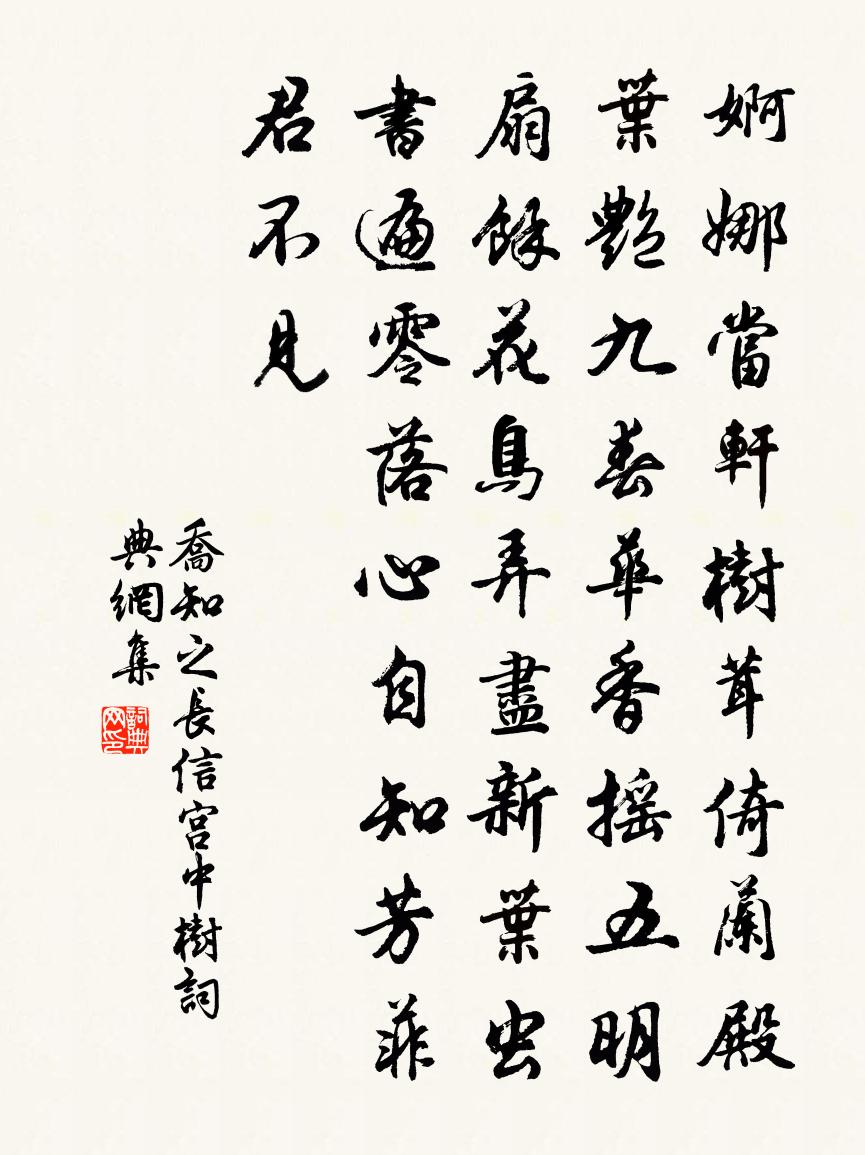 婀娜當軒樹茸茸倚蘭殿
葉艷九春華香搖五明
扇餘花鳥弄盡新葉虫
書遍零落心自知芳菲
君不見
喬知之長信宮中樹詞
典網集
詞典网印